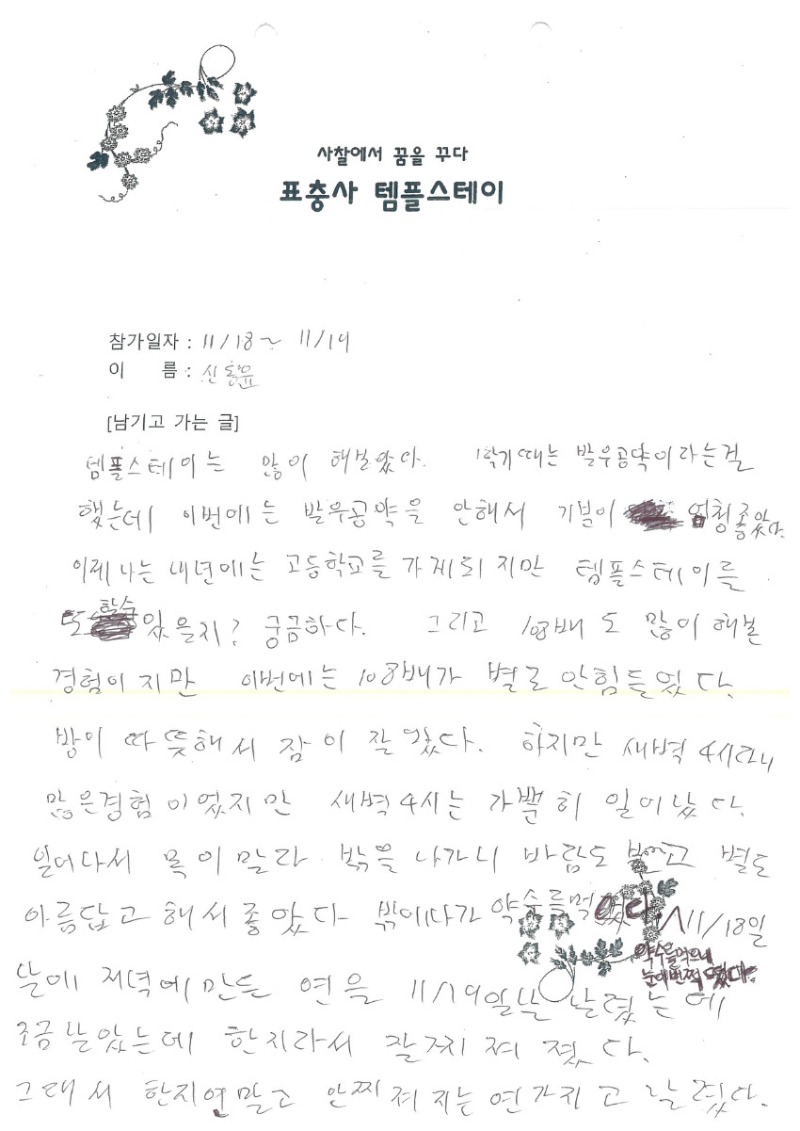 사찰에서 꿈을 꾸다
표충사 템플스테이
참가일자 : 11/18~ 11/19
이 름 : 신동윤
[남기고 가는 글]
템플스테이는 많이 해보았다. 1학기때는 발우공약이라는걸
했는데 이번에는 발우공약을 안해서 기분이 엄청좋았다.
이제 나는 내년에는 고등학교를 가게되지만 템플스테이를
또 할수 있을지? 궁금하다. 그리고 108배 도 많이 해본
경험이지만 이번에는 108배가 별로 안힘들었다.
방이 따뜻해서 잠이 잘왔다. 하지만 새벽 4시라니
많은경험이었지만 새벽4시는 가뿔히 일어났다.
일어다서 목이말라 밖을 나가니 바람도 불고 별도
아름답고 해서좋았다 밖에다가 약수를먹었다. 11/18일
약수을먹으니
눈이번쩍 였다.
날에 저녁에 만든 연을 11/19일날 날렸는데
조금 날았는데 한지라서 잘찌져졌다.
그래서 한지연말고 안찌져지는연가지고 날렸다.